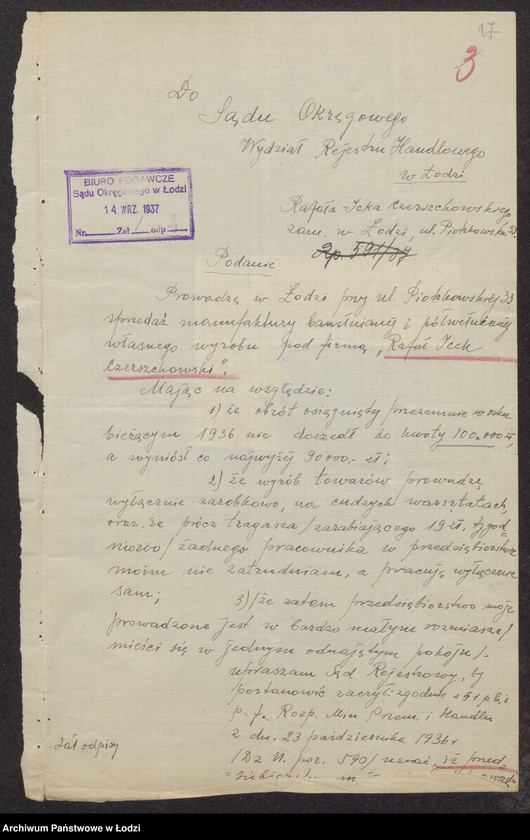 17
3
Do
Sądu Okręgowego
Wydział Rejestru Handlowego
w Łodzi
BIURO PODAWCZE
Sądu Okręgowego w Łodzi
14 WRZ. 1937
Nr. Zał odp
Rafała Icka Czerszchowskiego
zam. w Łodzi, ul. Piotrkowska 33
Rp. 591/37
Podanie
Prowadzę w Łodzi przy ul. Piotrkowskiej 33
sprzedaż manufaktury bawełnianej i półwełnianej
własnego wyrobu pod firmą „Rafał Icek
Czerszchowski".
Mając na względzie:
1) że obrót osiągnięty przezemnie w roku
bieżącym 1936 nie doszedł do kwoty 100.000 zł,
a wyniósł co najwyżej 90000.- zł;
2) że wyrób towarów prowadzę
wyłącznie zarobkowo, na cudzych warsztatach,
oraz że prócz tragarza /zarabiającego 19 zł. tygod-
niowo/ żadnego pracownika w przedsiębiorstwie
moim nie zatrudniam, a pracuję wyłącznie
sam;
3) że zatem przedsiębiorstwo moje
prowadzone jest w bardzo małym rozmiarze /
mieści się w jednym odnajętym pokoju /.
upraszam Sąd Rejestrowy, by
postanowić raczył: zgodnie z § 1 p.
p. f. Rozp. Min Przem. i Handlu
z dn. 23 października 1936 r
/Dz U. poz. 590/ uznać, iż przed-
zał odpisy
Archiwum Państwowe w Łodzi